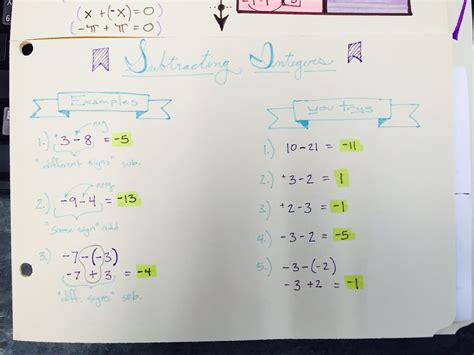 (x + (-x) = 0)
(-π + π = 0)
Subtracting Integers
Examples
1.) +3 - 8 = -5
neg
"different signs" sub.
2.) -9 - 4 = -13
neg
"Same sign" add
3.) -7 - (-3)
-7 + 3 = -4
"diff. signs" sub.
you trys
1.) 10 - 21 = -11
2.) +3 - 2 = 1
3.) +2 - 3 = -1
4.) -3 - 2 = -5
5.) -3 - (-2)
-3 + 2 = -1